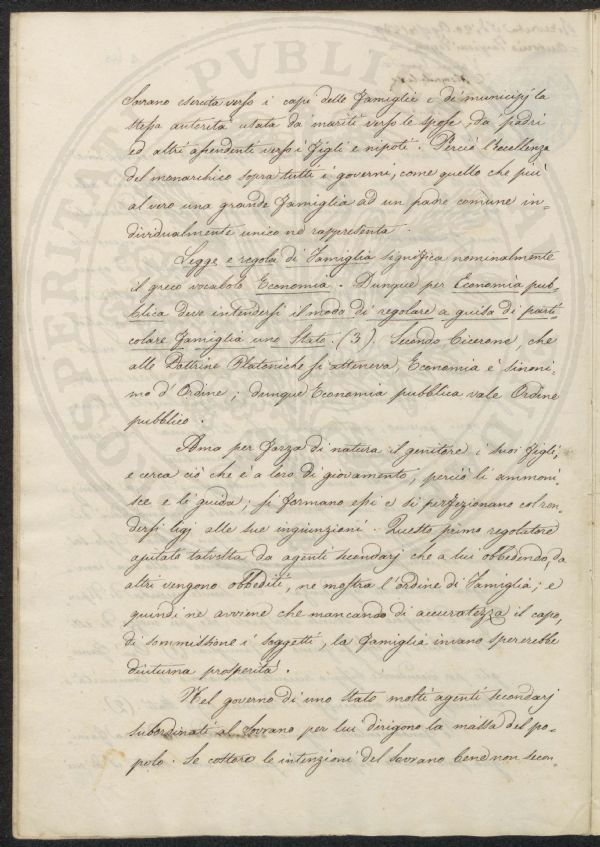 Sovrano esercita verso i capi delle famiglie e de' municipj la
stessa autorità usata da' mariti verso le spose, da' padri
ed altri ascendenti verso i figli e nipoti. Perciò l'eccellenza
del monarchico sopra tutti i governi, come quello che più
al vero una grande famiglia ad un padre comune in-
dividualmente unico ne rappresenta.
Legge e regola di famiglia significa nominalmente
il greco vocabolo Economia. Dunque per Economia pub-
blica deve intendersi il modo di regolare a guisa di parti-
colare famiglia uno Stato. (3). Secondo Cicerone, che
alle Dottrine Platoniche si atteneva, Economia è sinoni-
mo d'Ordine; dunque Economia pubblica vale Ordine
pubblico.
Ama per forza di natura il genitore i suoi figli,
e cerca ciò che è a loro di giovamento, perciò li ammoni-
sce e li guida; si formano essi e si perfezionano col ren-
dersi ligj alle sue ingiunzioni. Questo primo regolatore
ajutato talvolta da agenti secondarj che a lui obbedendo, da
altri vengono obbediti, ne mostra l'ordine di famiglia; e
quindi ne avviene che mancando di accuratezza il capo,
di sommissione i soggetti, la famiglia invano spererebbe
diuturna prosperità.
Nel governo di uno stato molti agenti secondarj
subordinati al Sovrano per lui dirigono la massa del po-
polo. Se costoro le intenzioni del sovrano bene non secon-
PUBLI